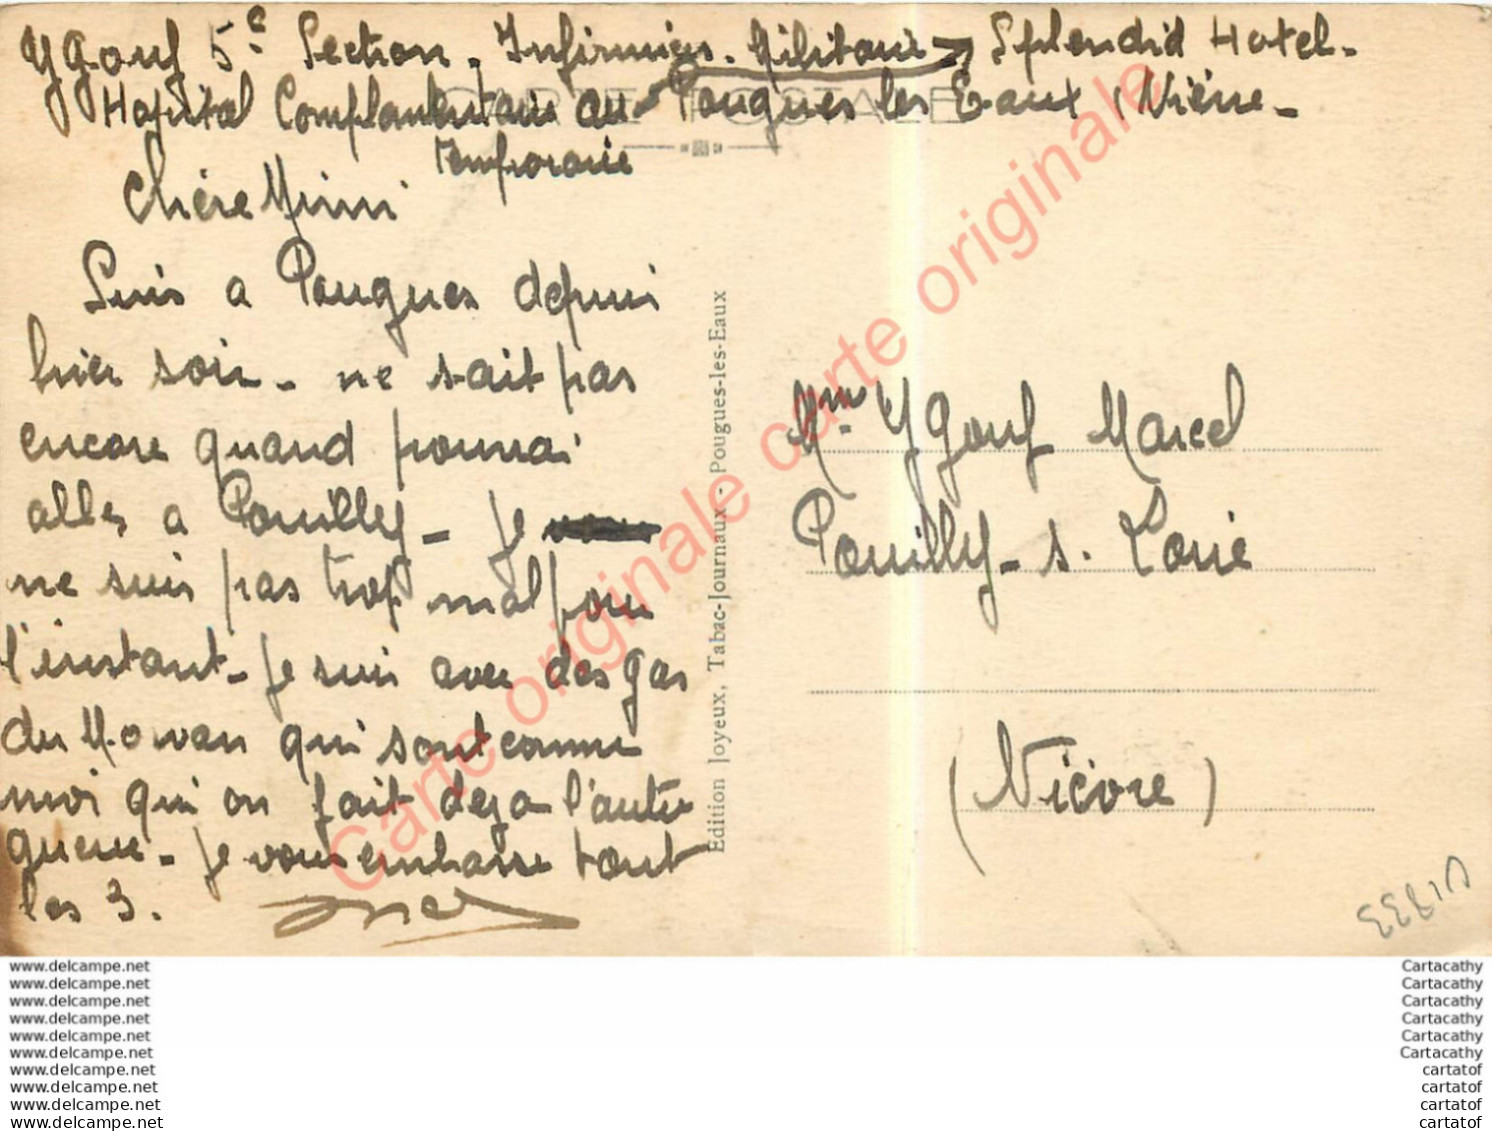 Ygouf 5e Section - Infirmiers - Militaire - Splendid Hotel -
Hopital Complementaire au Pougues les Eaux (Nièvre -
Temporaire
CARTE POSTALE
Chère Mimi
Suis a Pougues depuis
hier soir - ne sait pas
encore quand pourrai
aller a Pouilly - je
ne suis pas trop mal pour
l'instant - je suis avec des gas
du Morvan qui sont comme
moi qui on fait deja l'autre
guerre - je vous embrasse tout
les 3.
Edition Joyeux, Tabac-Journaux - Pougues-les-Eaux
Mme Ygouf Marcel
Pouilly - s. Loire
(Nièvre)
V1933
Carte originale carte originale carte originale
www.delcampe.net
www.delcampe.net
www.delcampe.net
www.delcampe.net
www.delcampe.net
www.delcampe.net
www.delcampe.net
www.delcampe.net
www.delcampe.net
www.delcampe.net
Cartacathy
Cartacathy
Cartacathy
Cartacathy
Cartacathy
Cartacathy
cartatof
cartatof
cartatof
cartatof